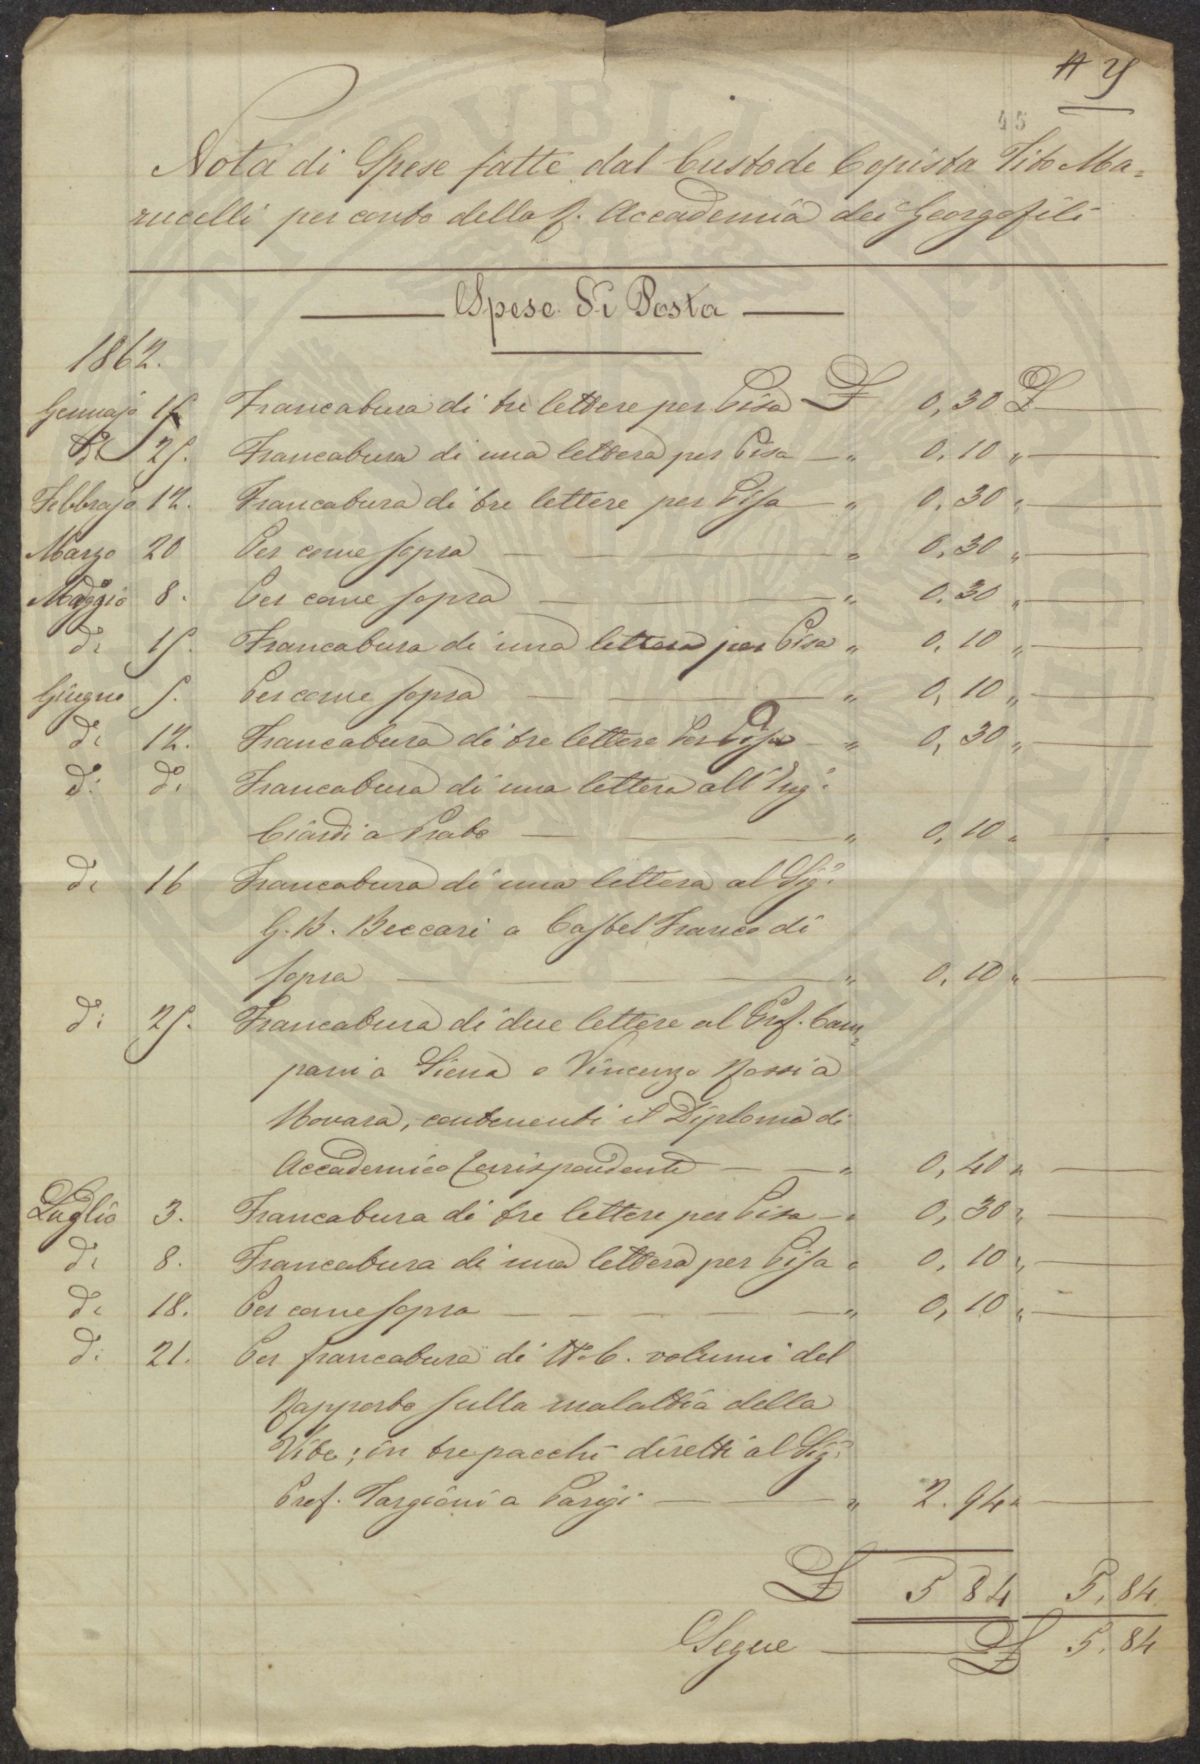 45
Nota di Spese fatte dal Custode Copista Tito Ma=
rucelli per conto della R. Accademia dei Georgofili
Spese di Posta
1862.
Gennajo 15 Francatura di tre lettere per Pisa £ 0,30 £
di 25. Francatura di una lettera per Pisa " 0,10 "
Febbrajo 12. Francatura di tre lettere per Pisa " 0,30 "
Marzo 20 Per come sopra " 0,30 "
Maggio 8. Per come sopra " 0,30 "
di 15. Francatura di una lettera per Pisa " 0,10 "
Giugno 5. Per come sopra " 0,10 "
di 12. Francatura di tre lettere per Pisa " 0,30 "
di di Francatura di una lettera all'Ing:
Ciardi a Prato " 0,10 "
di 16 Francatura di una lettera al Sig:
G. B. Beccari a Castel Franco di
sopra " 0,10 "
di 25. Francatura di due lettere al Prof. Cam=
pani a Siena e Vincenzo Rossi a
Novara, contenenti il Diploma di
Accademico Corrispondente " 0,40 "
Luglio 3. Francatura di tre lettere per Pisa " 0,30 "
di 8. Francatura di una lettera per Pisa " 0,10 "
di 18. Per come sopra " 0,10 "
di 21. Per francatura di N° 6. volumi del
Rapporto sulla malattia della
Vite; in tre pacchi diretti al Sig:
Prof. Targioni a Parigi " 2.94 "
£ 5 84 5,84
Segue £ 5.84